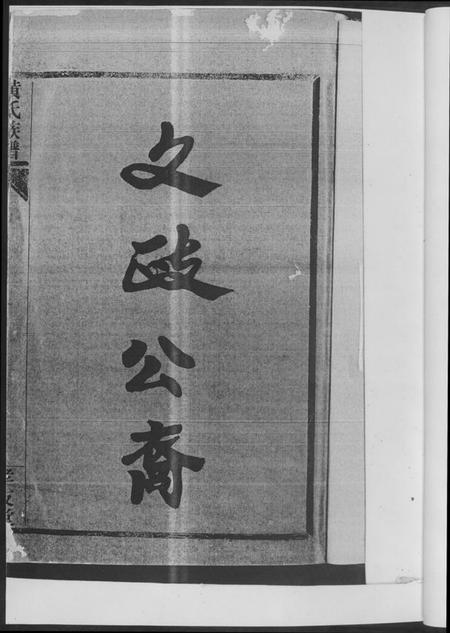 文政公裔
黄氏族譜